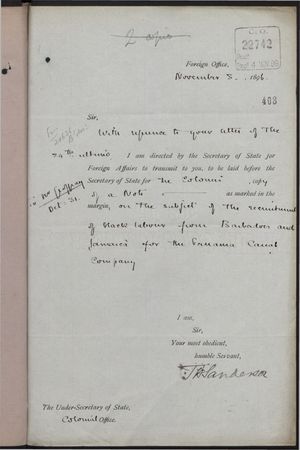 C.O.
22742
Rec
Recd 4 NOV 96
Foreign Office,
November 3, 1896.
403
Sir,
With reference to your letter of the
24th ultimo I am directed by the Secretary of State for
Foreign Affairs to transmit to you, to be laid before the
Secretary of State for the Colonies copy
of a Note as marked in the
margin, on the subject of the recruitment
of black labour from Barbados and
Jamaica for the Panama Canal
Company
Oct. 31.
I am,
Sir,
Your most obedient,
humble Servant,
T H Sanderson
The Under-Secretary of State,
Colonial Office.